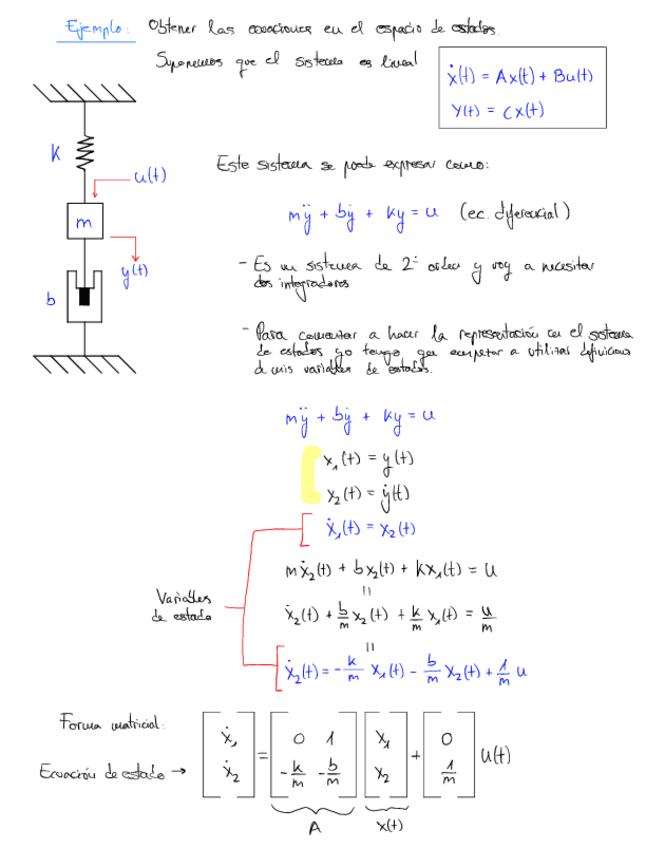 Ejemplo: Obtener las ecuaciones en el espacio de estados.
Suponemos que el sistema es lineal
ẋ(t) = Ax(t) + Bu(t)
y(t) = Cx(t)
k
u(t)
m
y(t)
b
Este sistema se puede expresar como:
mÿ + bẏ + ky = u (ec. diferencial)
- Es un sistema de 2º orden y voy a necesitar
dos integradores
- Para comenzar a hacer la representación en el sistema
de estados yo tengo que empezar a utilizar definiciones
de mis variables de estados.
mÿ + bẏ + ky = u
x₁(t) = y(t)
x₂(t) = ẏ(t)
ẋ₁(t) = x₂(t)
mẋ₂(t) + bx₂(t) + kx₁(t) = u
=
ẋ₂(t) + b/m x₂(t) + k/m x₁(t) = u/m
=
ẋ₂(t) = -k/m x₁(t) - b/m x₂(t) + 1/m u
Variables
de estado
Forma matricial:
Ecuación de estado →
[ẋ₁ ẋ₂] = [0 1 -k/m -b/m] [x₁ x₂] + [0 1/m] u(t)
A x(t)